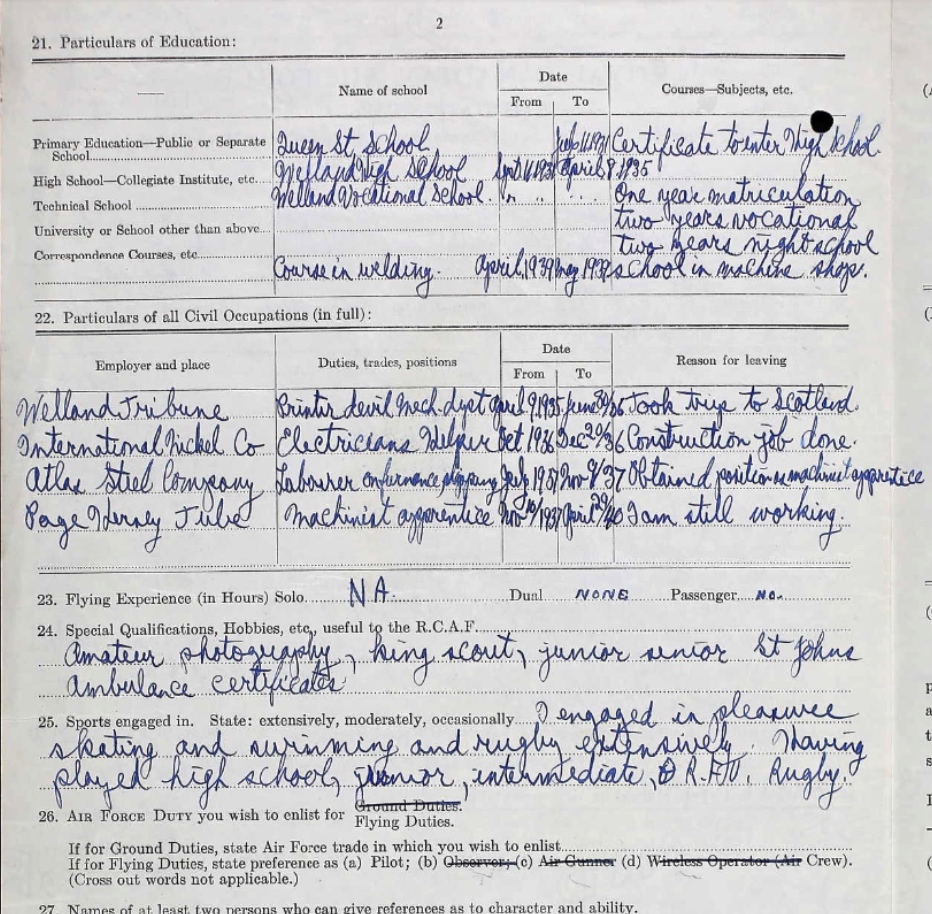 2
21. Particulars of Education:
Name of school
Date
From To
Courses—Subjects, etc.
Primary Education—Public or Separate School Queen St School Certificate to enter High School
High School—Collegiate Institute, etc. Welland High School April 9 1935
Technical School Welland Vocational School " " One year matriculation
University or School other than above two years vocational
Correspondence Courses, etc two years night school
Course in welding. April, 1939 1939 school in machine shop.
22. Particulars of all Civil Occupations (in full):
Employer and place
Duties, trades, positions
Date
From To
Reason for leaving
Welland Tribune Printer devil Mech. dept April 9, 1935 June 35 Took trip to Scotland.
International Nickel Co Electricians Helper Oct 1936 Dec 20/36 Construction job done.
Atlas Steel Company Labourer on furnace 1937 Nov 9/37 Obtained position as machinist apprentice
Page Hersey Tube Machinist apprentice Nov 10/1937 April 29/40 I am still working.
23. Flying Experience (in Hours) Solo NA. Dual NONE Passenger No.
24. Special Qualifications, Hobbies, etc., useful to the R.C.A.F.
Amateur photography, king scout, junior senior St Johns
Ambulance certificates
25. Sports engaged in. State: extensively, moderately, occasionally I engaged in pleasure
skating and swimming and rugby extensively. Having
played high school, junior, intermediate, O.R.F.U. Rugby.
26. AIR FORCE DUTY you wish to enlist for Ground Duties.
Flying Duties.
If for Ground Duties, state Air Force trade in which you wish to enlist
If for Flying Duties, state preference as (a) Pilot; (b) Observer; (c) Air Gunner (d) Wireless Operator (Air Crew).
(Cross out words not applicable.)
27. Names of at least two persons who can give references as to character and ability.